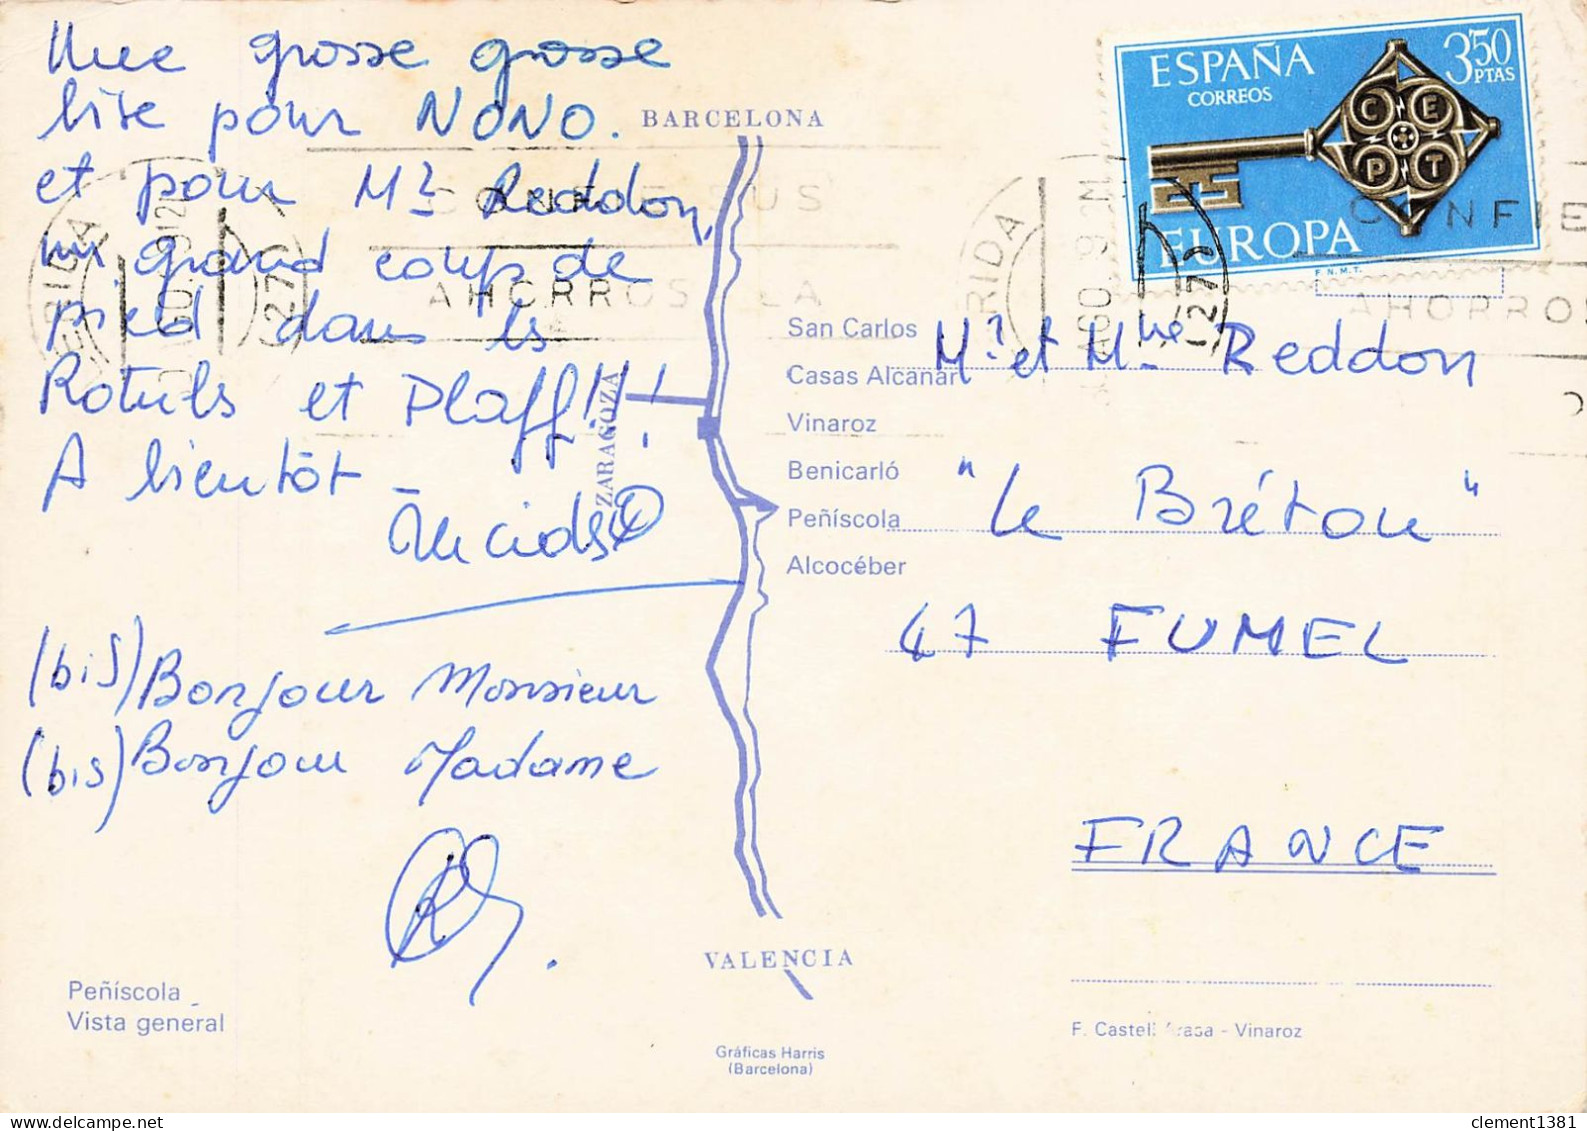 Une grosse grosse
bise pour NONO.
et pour Mr Reddon,
un grand coup de
pied dans les
Rotules et Plaff!!!
A bientôt _
(bis) Bonjour Monsieur
(bis) Bonjour Madame
Peñíscola
Vista general
BARCELONA
ZARAGOZA
San Carlos
Casas Alcanar
Vinaroz
Benicarló
Peñíscola
Alcocéber
VALENCIA
Gráficas Harris
(Barcelona)
ESPAÑA
CORREOS
3'50
PTAS
CEPT
EUROPA
F.N.M.T.
CONFIE SUS
AHORROS LA
CONFIE
AHORRO
Mr et Mme Reddon
"Le Bréton"
47 FUMEL
FRANCE
F. Castell - Vinaroz
clement1381